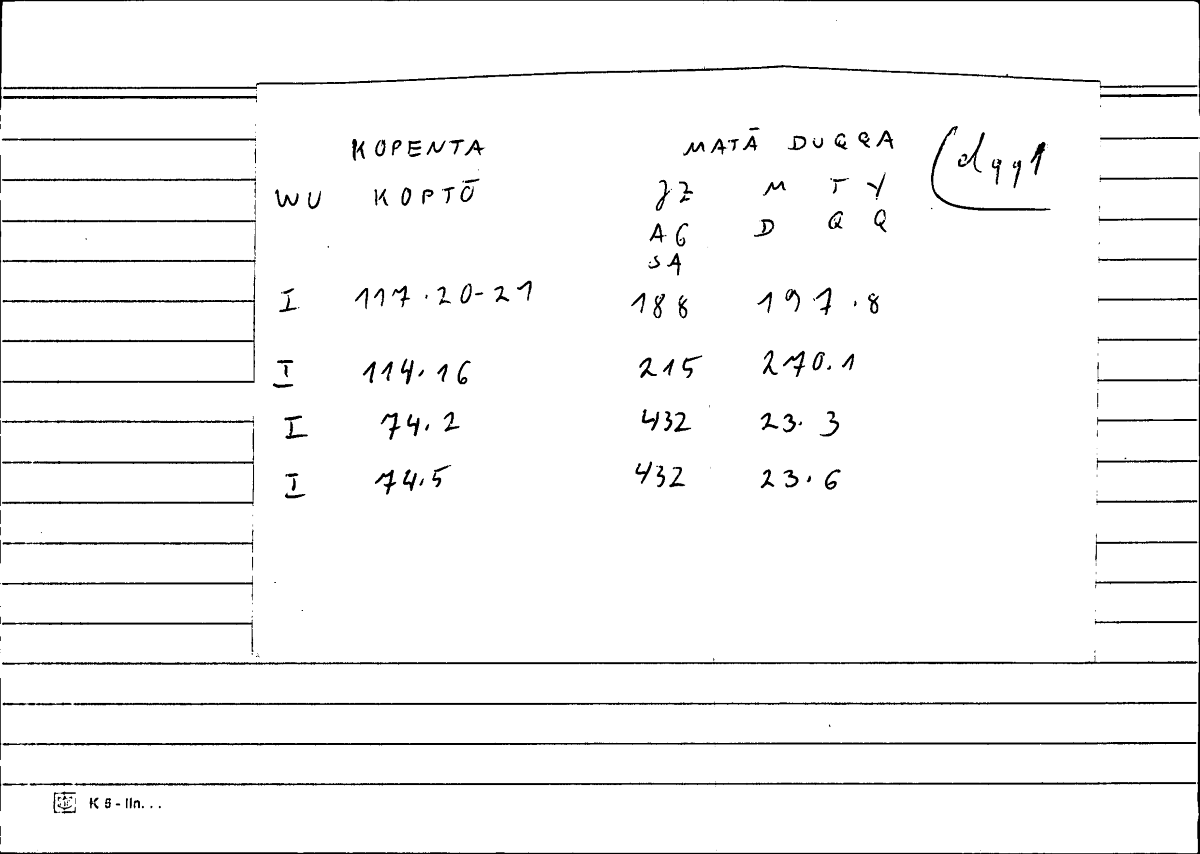 KOPENTA MATĀ DUQQA (dqq1
WU KOPTŌ JZ M T Y
AG D Q Q
SA
I 117.20-21 188 197.8
I 114.16 215 270.1
I 74.2 432 23.3
I 74.5 432 23.6
K 6 - lln...